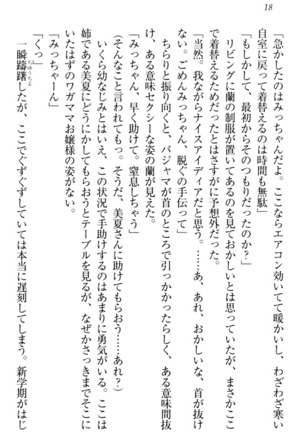 18
「急かしたのはみっちゃんだよ。ここならエアコン効いてて暖かいし、わざわざ寒い
自室に戻って着替えるのは時間も無駄」
「もしかして、最初からそのつもりだったのか？」
リビングに蘭の制服が置いてあるのを見ておかしいとは思っていたが、まさかここ
で着替えるためだったとはさすがに予想外だった。
「当然。我ながらナイスアイディアだと……あ、あれ、おかしいな、首が抜け
ない。ごめんみっちゃん、脱ぐの手伝って」
ちらりと振り向くと、パジャマが首のところで引っかかったらしく、ある意味間抜
け、ある意味セクシーな姿の蘭が見えた。
「みっちゃん、早く助けて。窒息しちゃう」
（そんなこと言われても。そうだ、美夏さんに助けてもらおう……あれ？）
いくら幼なじみとはいえ、この状況で手助けするのはあまりに勇気がいる。ここは
姉である美夏になんとかしてもらおうとテーブルを見るが、なぜかさっきまでそこに
いたはずのワガママお嬢様の姿がない。
「みっちゃーん」
「くっ」
一瞬躊躇したが、ここでぐずぐずしていては本当に遅刻してしまう。新学期がはじ